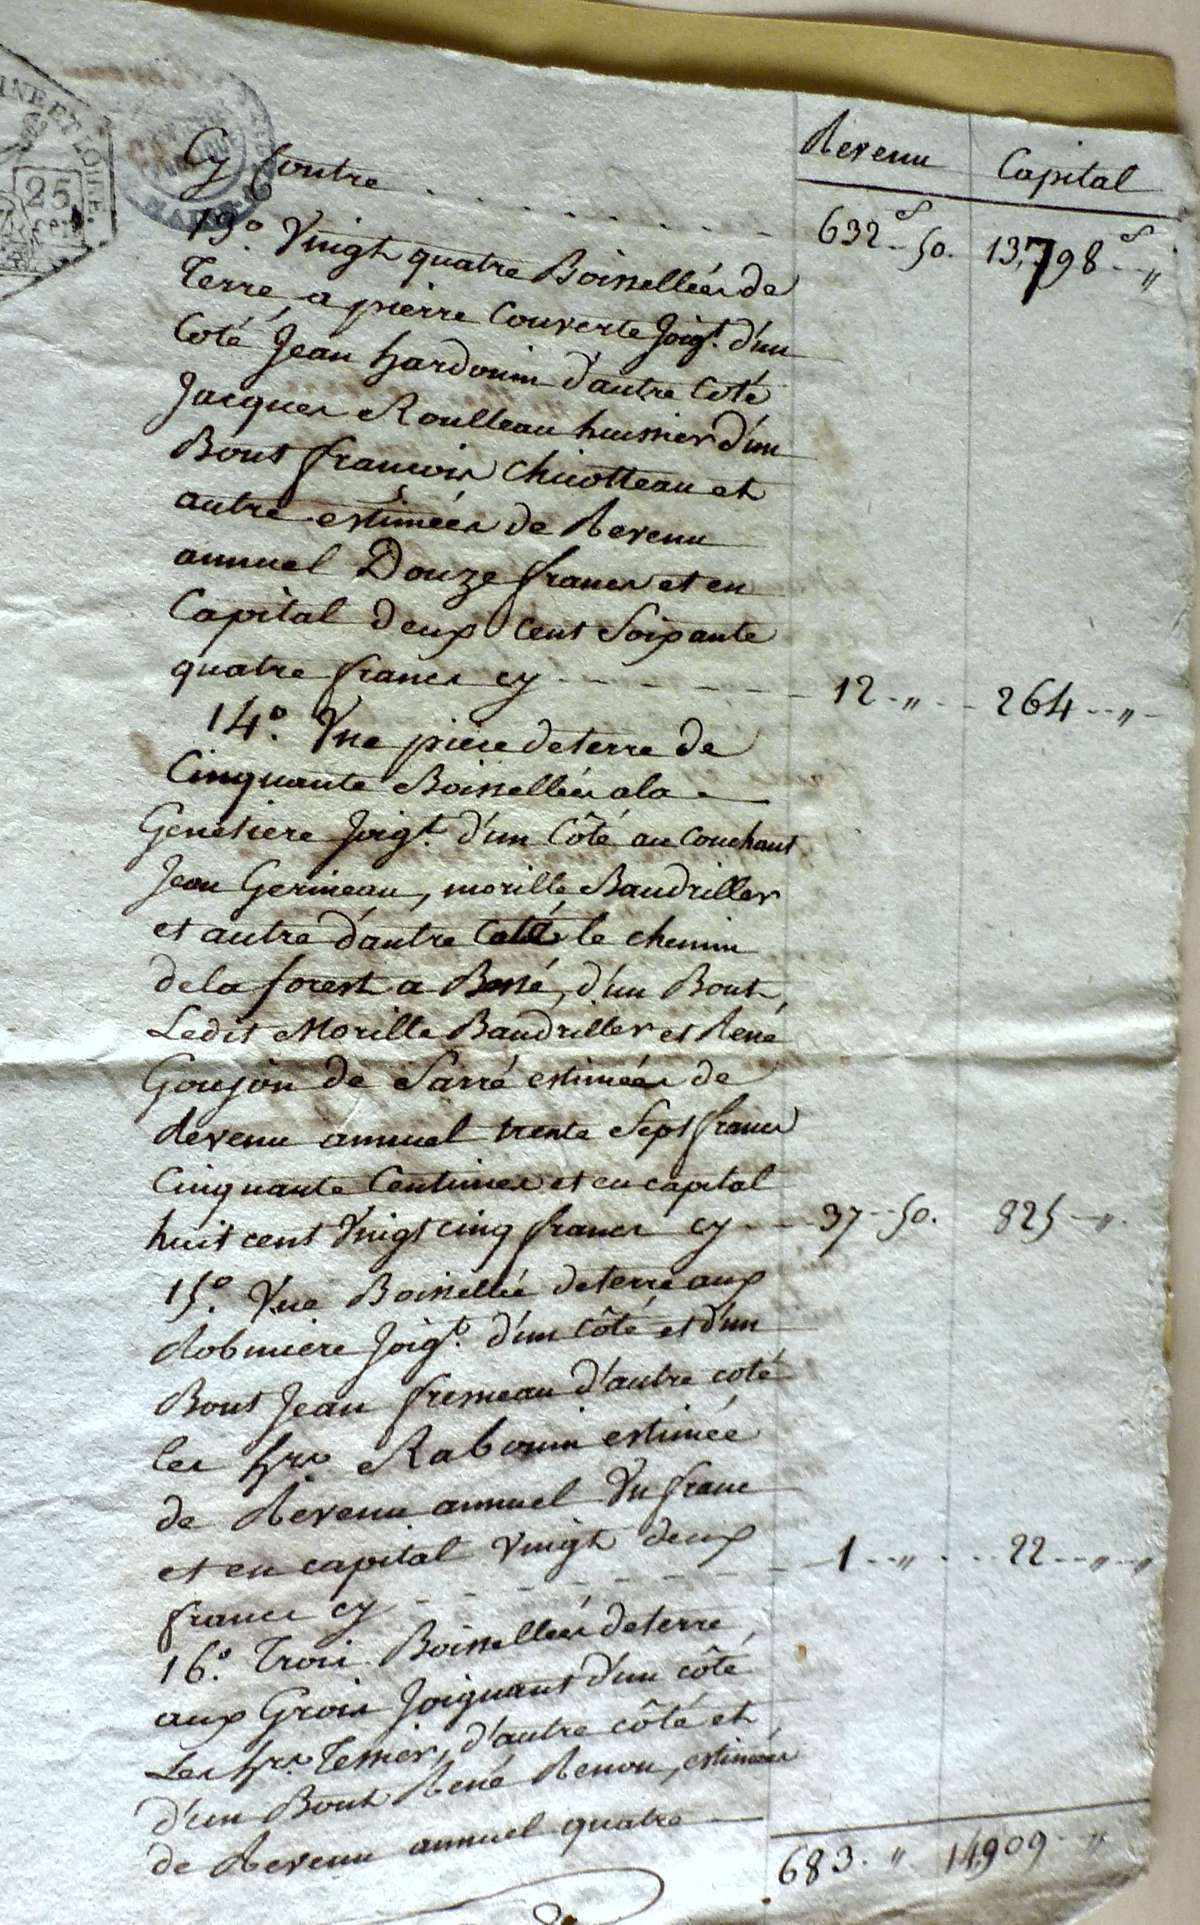 INE ET LOIRE.
25
cen
Revenu Capital
Cy Contre . . . . . . . . 632 f 50. 13,798 f "
13º. Vingt quatre Boissellées de
Terre, a pierre Couverte Joigt. d'un
Coté Jean hardouin d'autre Coté
Jacques Roulleau huissier d'un
Bout françois Chicotteau et
autre estimées de Revenu
annuel Douze francs et en
Capital deux cent Soixante
quatre francs cy - - - - - - 12 - " - - 264 - - " -
14º. Une piece de terre de
Cinquante Boissellées a la
Genetiere Joigt. d'un Côté au Couchant
Jean Gerineau, morille, Baudriller
et autre d'autre Coté le chemin
de la forest a Bessé, d'un Bout
Ledit Morille Baudriller et René
Goujon de Sarré estimées de
Revenu annuel trente Sept francs
Cinquante Centimes et en capital
huit cent Vingt cinq francs cy - - 37 - 50. 825 - "
15º. Une Boissellée de terre aux
Robiniere Joigt. d'un Côté et d'un
Bout Jean fresneau d'autre coté
les hrs. Rabouin estimée
de Revenu annuel Un franc
et en capital Vingt deux
francs cy - - - - - - - 1 - - " - - 22 - - " - "
16º. Trois Boissellées de terre
aux Grois Joignant d'un côté
Les hrs. Tessier, d'autre côté et
d'un Bout René Renou, estimées
de Revenu annuel quatre
683. " 14,909 "